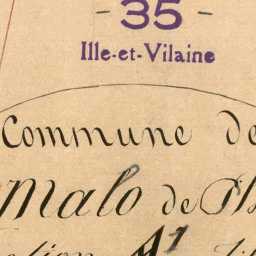 - 35 -
Ille-et-Vilaine
Commune de
malo de Ph
ction A1